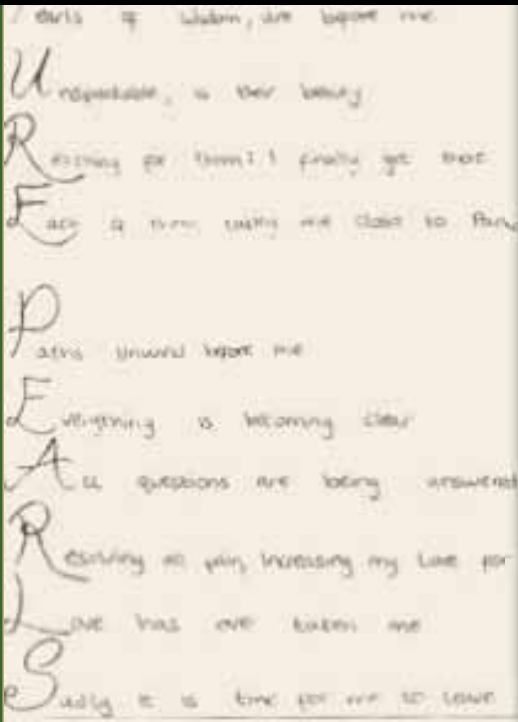 Pearls of wisdom, are before me
is their beauty
Reaching for them! I finally get there
Each of them taking me closer to
Paths unwind before me
Everything is becoming clear
All questions are being answered
Resolving my pain, increasing my love for
Love has over taken me
Sadly it is time for me to leave